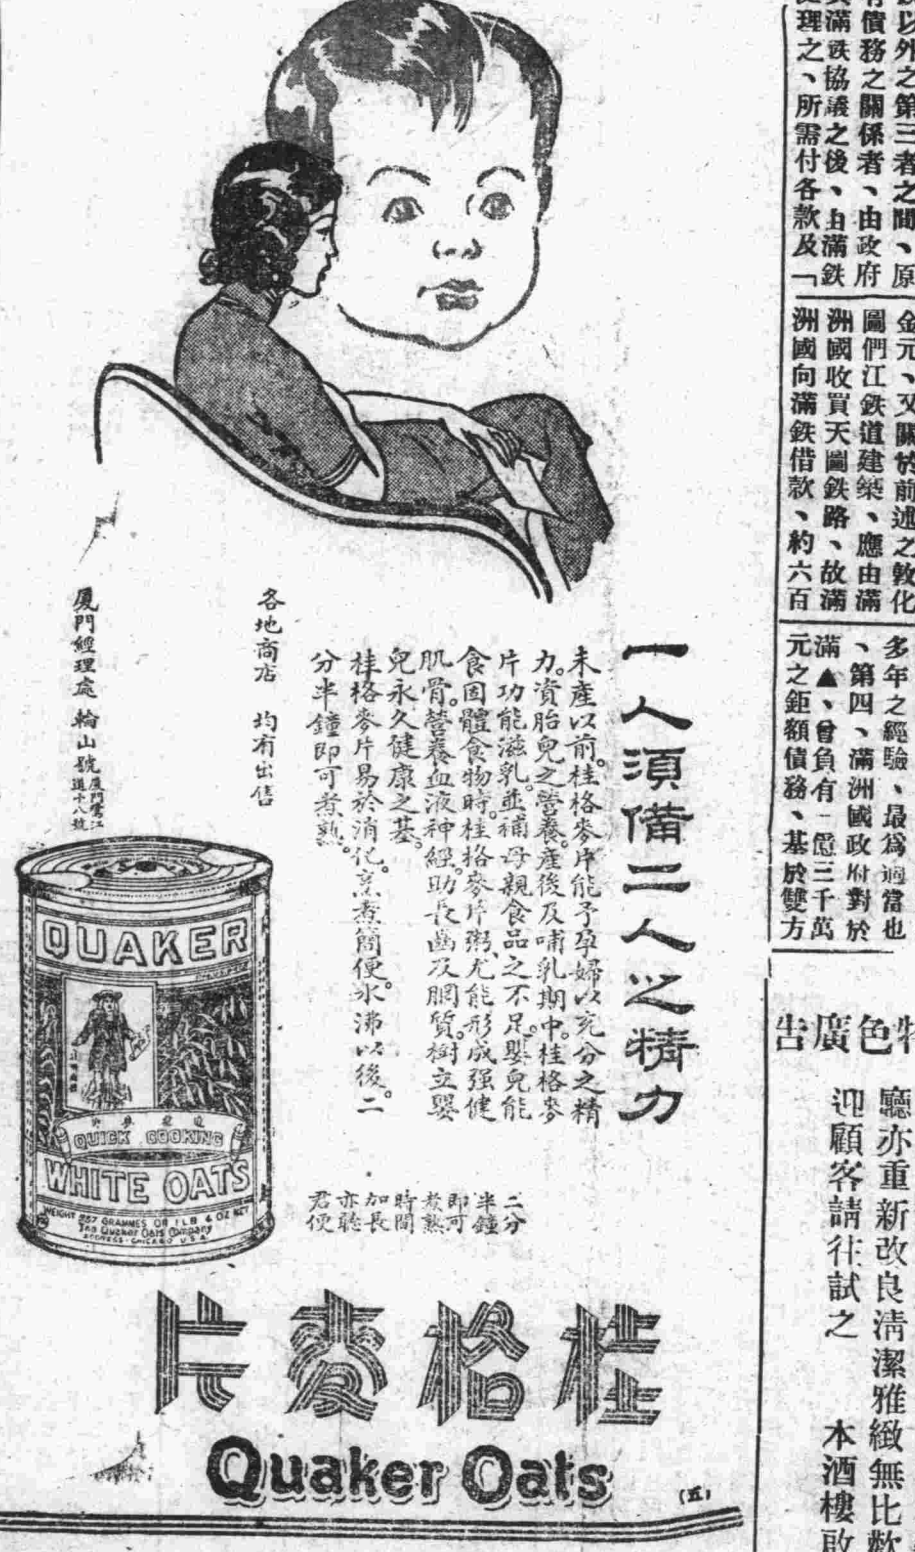 一人須備二人之精力
未產以前。桂格麥片能予孕婦以充分之精
力。資胎兒之營養。產後及哺乳期中。桂格麥
片功能滋乳。並補母親食品之不足。嬰兒能
食固體食物時。桂格麥片粥、尤能形成强健
肌骨。營養血液神經。助長齒及腦質。樹立嬰
兒永久健康之基。
桂格麥片易於消化。烹煮簡便。水沸以後。二
分半鐘即可煮熟。
各地商店 均有出售
廈門經理處 輪山號
廈門鷺江
道十八號
QUAKER
QUICK COOKING
WHITE OATS
WEIGHT 567 GRAMMES OR 1 LB 4 OZ NET
The Quaker Oats Company
ADDRESS-CHICAGO U.S.A.
二分
半鐘
即可
煮熟
時間
加長
亦聽
君便
桂格麥片
Quaker Oats
(五)
以外之第三者之間、原
債務之關係者、由政府
滿鉄協議之後、由滿鉄
理之、所需付各款及「
金元、又關於前述之敦化
圖們江鉄道建築、應由滿
洲國收買天圖鉄路、故滿
洲國向滿鉄借款、約六百
多年之經驗、最爲適當也
、第四、滿洲國政府對於
滿▲、曾負有一億三千萬
元之鉅額債務、基於雙方
特色廣告
廳亦重新改良淸潔雅緻無比歡
迎顧客請往試之 本酒樓啟